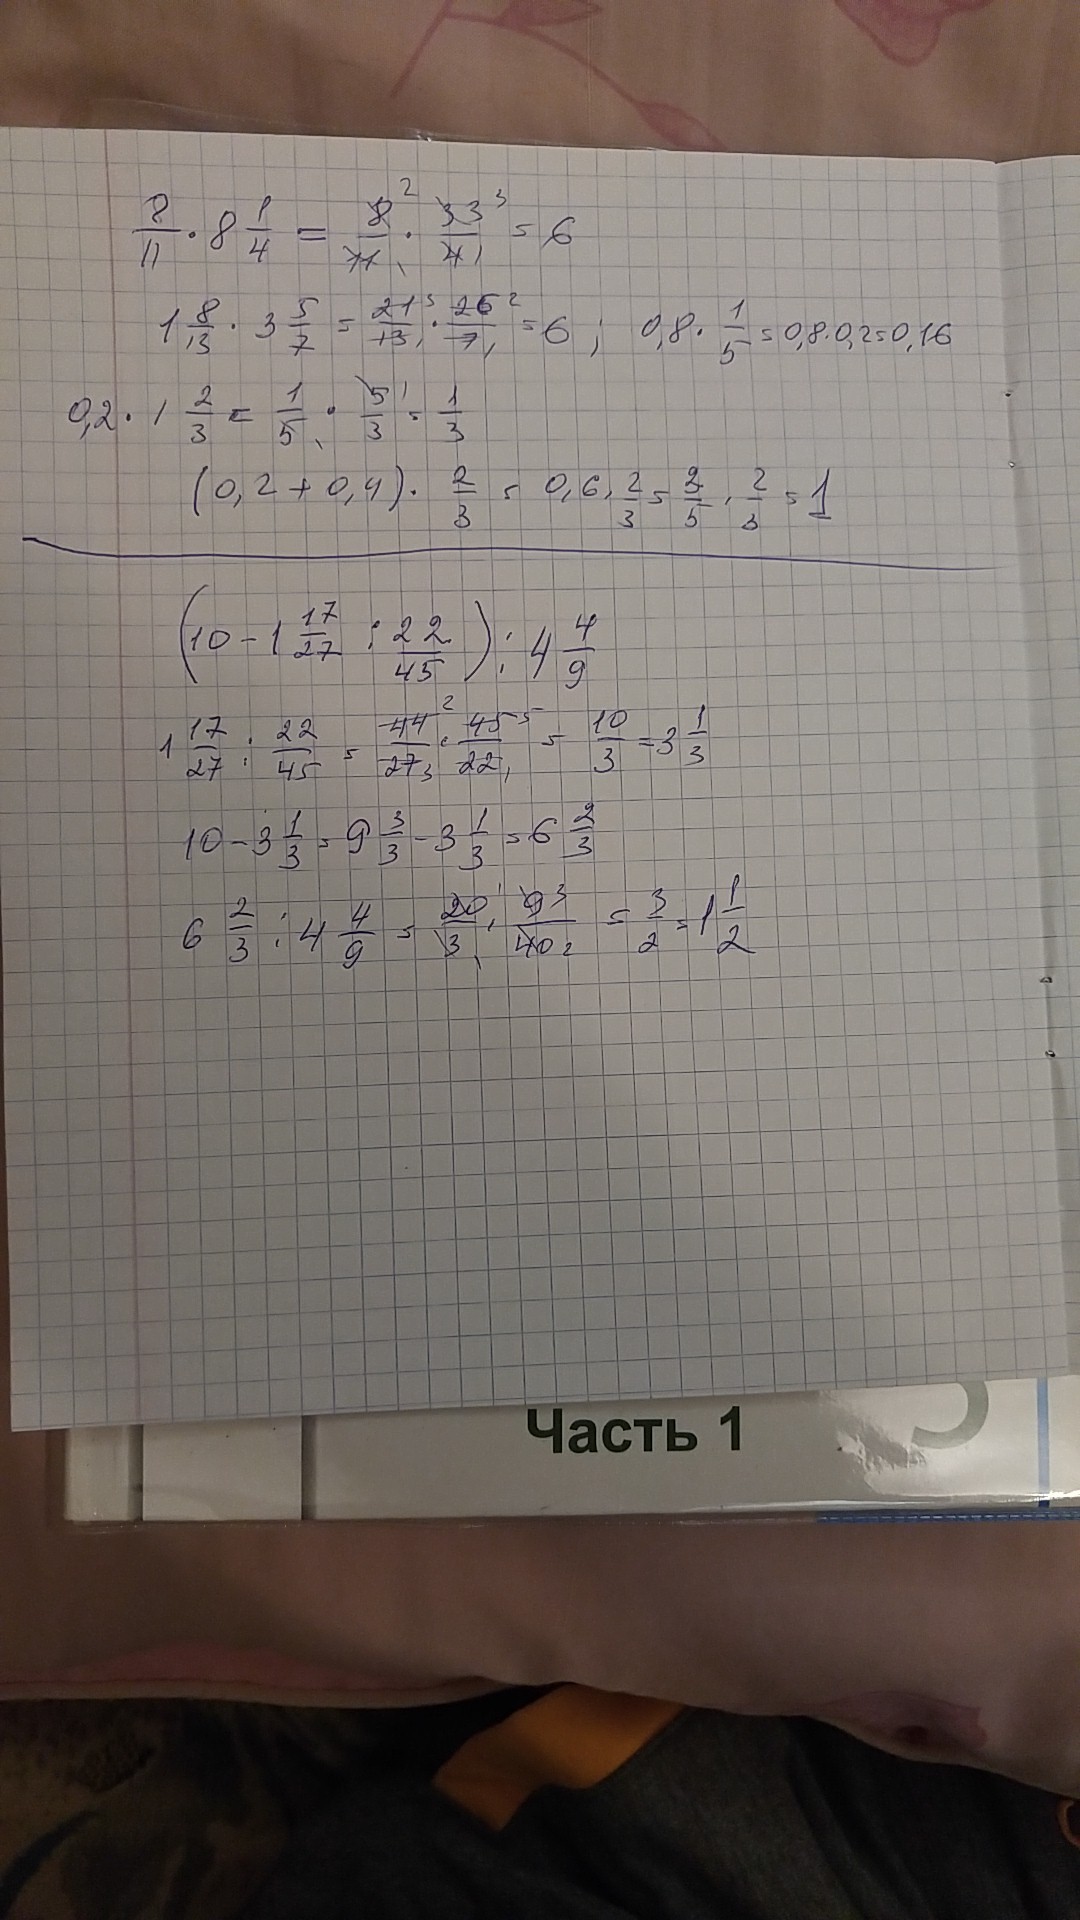 8/11 · 8 1/4 = 8²/11₁ · 33³/4₁ = 6
1 8/13 · 3 5/7 = 21³/13₁ · 26²/7₁ = 6 ; 0,8 · 1/5 = 0,8 · 0,2 = 0,16
0,2 · 1 2/3 = 1/5₁ · 5¹/3 = 1/3
(0,2 + 0,4) · 2/3 = 0,6 · 2/3 = 3/5 · 2/3 = 1
(10 - 1 17/27 : 22/45) : 4 4/9
1 17/27 : 22/45 = 44²/27₃ · 45⁵/22₁ = 10/3 = 3 1/3
10 - 3 1/3 = 9 3/3 - 3 1/3 = 6 2/3
6 2/3 : 4 4/9 = 20¹/3₁ · 9³/40₂ = 3/2 = 1 1/2
Часть 1